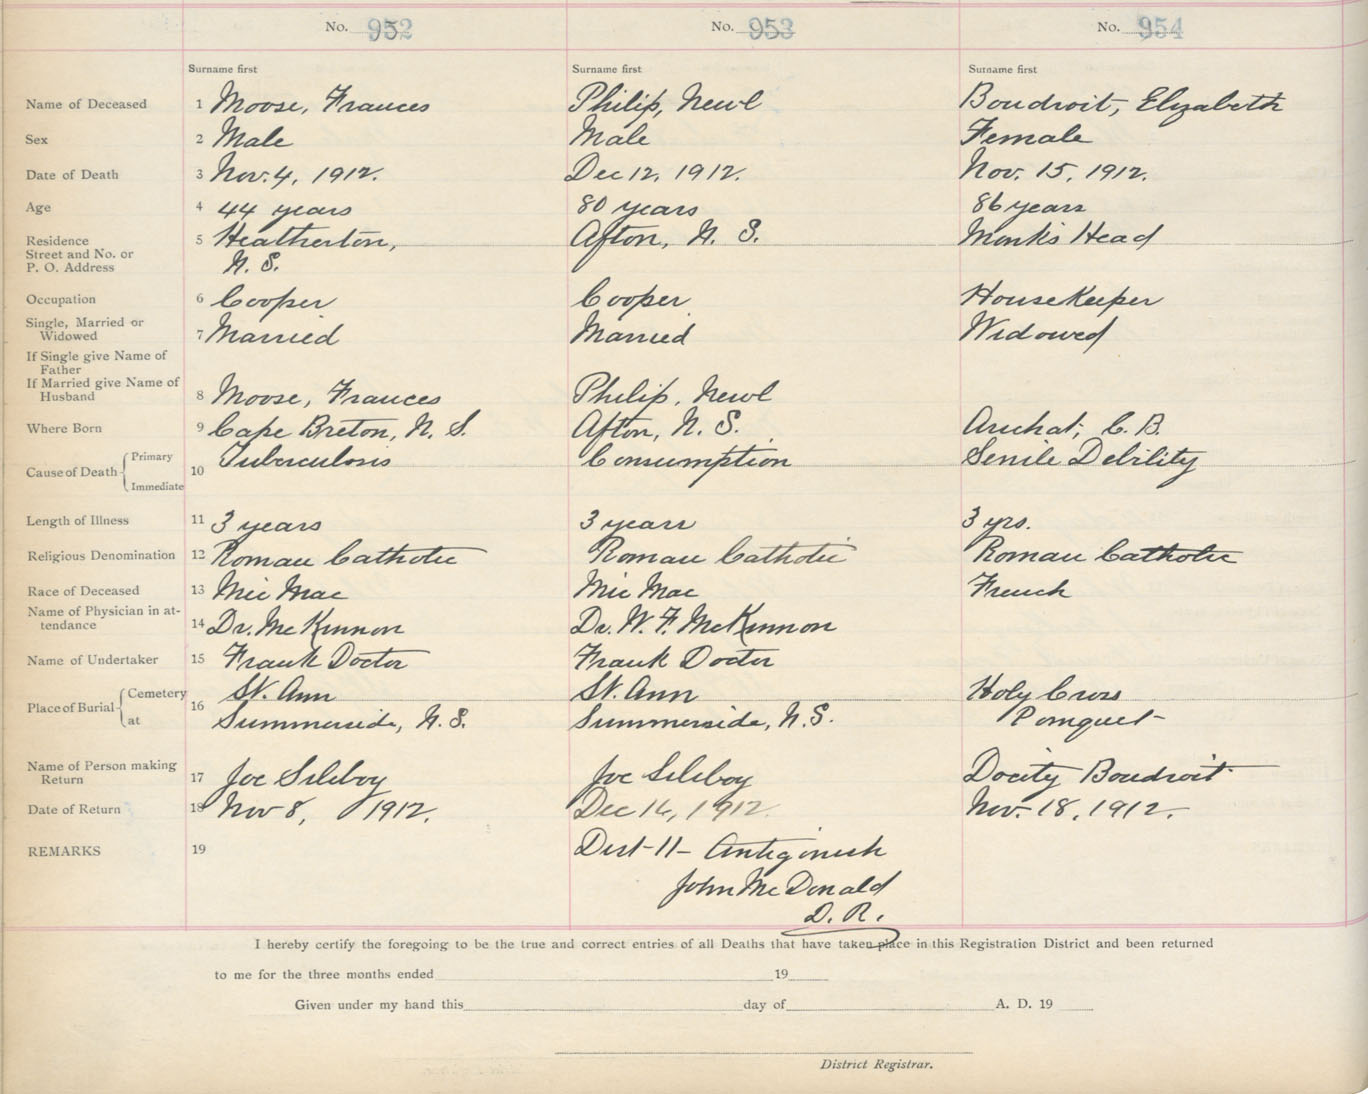 No. 952
No. 953
No. 954
Surname first
Surname first
Surname first
Name of Deceased 1 Moose, Frances Philip, Newl Boudroit, Elyzabeth
Sex 2 Male Male Female
Date of Death 3 Nov. 4, 1912. Dec 12, 1912. Nov. 15, 1912.
Age 4 44 years 80 years 86 years
Residence 5 Heatherton, Afton, N. S. Monk's Head
Street and No. or
P. O. Address N. S.
Occupation 6 Cooper Cooper HouseKeeper
Single, Married or
Widowed 7 Married Married Widowed
If Single give Name of
Father
If Married give Name of
Husband 8 Moose, Frances Philip, Newl
Where Born 9 Cape Breton, N. S. Afton, N. S. Arichat, C. B.
Cause of Death 10 Primary Tuberculosis Consumption Senile Debility
Immediate
Length of Illness 11 3 years 3 years 3 yrs.
Religious Denomination 12 Roman Catholic Roman Catholic Roman Catholic
Race of Deceased 13 Mic Mac Mic Mac French
Name of Physician in at-
tendance 14 Dr. McKinnon Dr. W. F. McKinnon
Name of Undertaker 15 Frank Doctor Frank Doctor
Place of Burial 16 Cemetery St. Ann St. Ann Holy Cross
at Summerside, N. S. Summerside, N. S. Pomquet
Name of Person making
Return 17 Joe Sileboy Joe Sileboy Docity Boudroit
Date of Return 18 Nov 8, 1912. Dec 16, 1912. Nov. 18, 1912.
REMARKS 19 Dist-11- Antigonish
John McDonald
D. R.
I hereby certify the foregoing to be the true and correct entries of all Deaths that have taken place in this Registration District and been returned
to me for the three months ended 19
Given under my hand this day of A. D. 19
District Registrar.